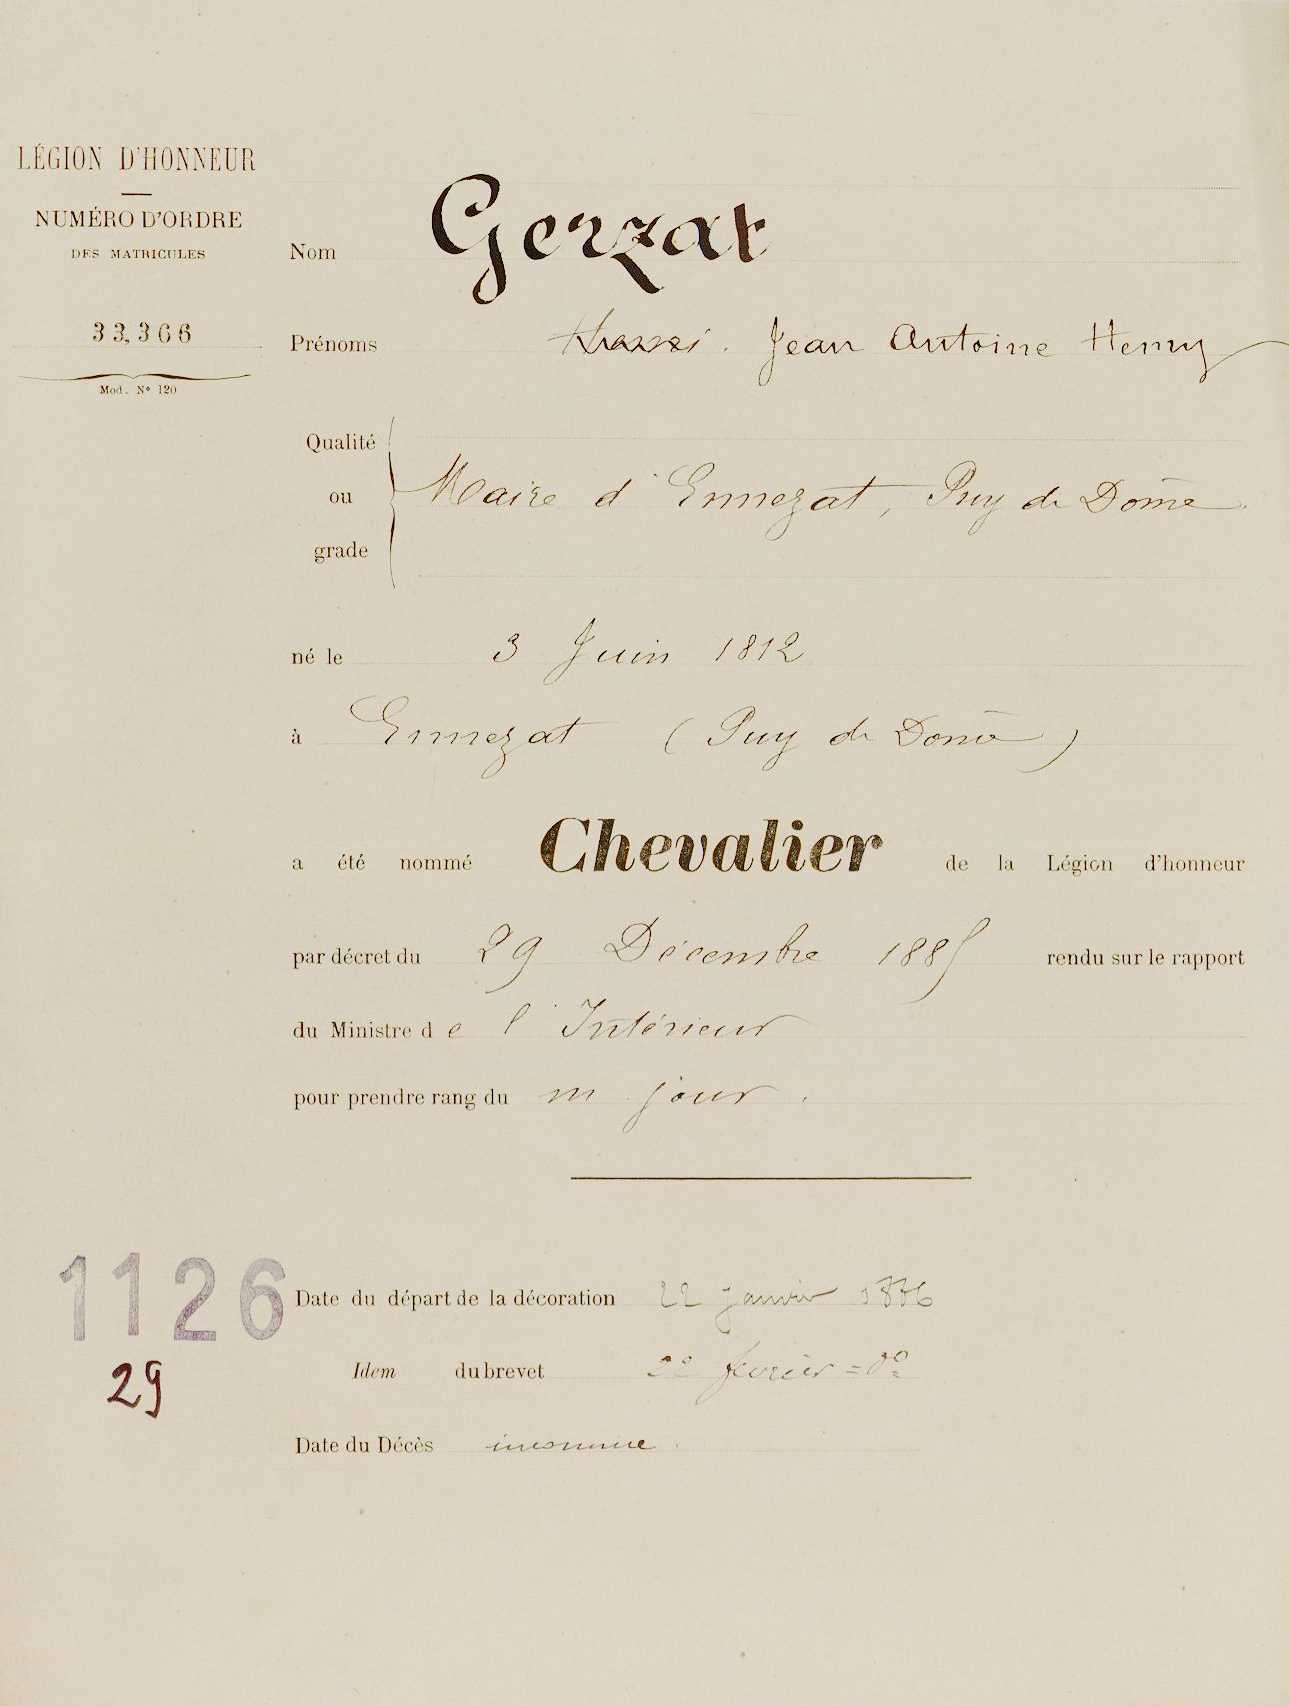 LÉGION D'HONNEUR
NUMÉRO D'ORDRE
DES MATRICULES
33,366
Mod. N° 120
Nom Gerzat
Prénoms Jean Antoine Henry
Qualité
ou
grade
Maire d'Ennezat, Puy de Dôme
né le 3 Juin 1812
à Ennezat (Puy de Dôme)
a été nommé Chevalier de la Légion d'honneur
par décret du 29 Décembre 1885 rendu sur le rapport
du Ministre de l'Intérieur
pour prendre rang du m jour.
1126
29
Date du départ de la décoration 22 janvier 1886
Idem du brevet février = do
Date du Décès inconnue